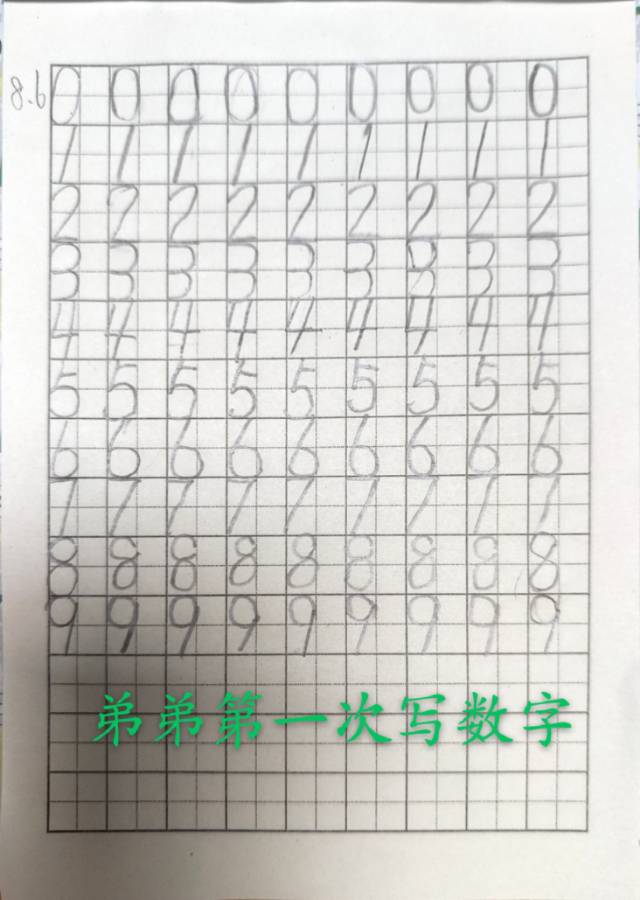 8.6
0 0 0 0 0 0 0 0 0
1 1 1 1 1 1 1 1 1
2 2 2 2 2 2 2 2 2
3 3 3 3 3 3 3 3 3
4 4 4 4 4 4 4 4 4
5 5 5 5 5 5 5 5 5
6 6 6 6 6 6 6 6 6
7 7 7 7 7 7 7 7 7
8 8 8 8 8 8 8 8 8
9 9 9 9 9 9 9 9 9
弟弟第一次写数字